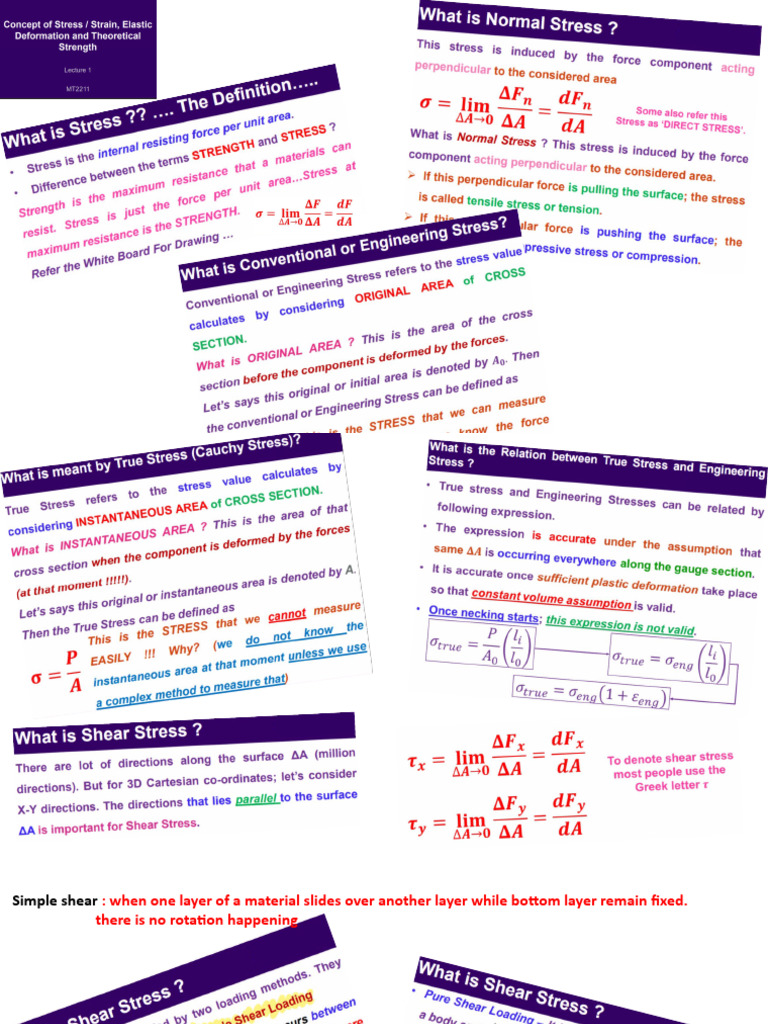 Concept of Stress / Strain, Elastic
Deformation and Theoretical
Strength
Lecture 1
MT2211
What is Stress ?? …. The Definition…..
• Stress is the internal resisting force per unit area.
• Difference between the terms STRENGTH and STRESS ?
Strength is the maximum resistance that a materials can
resist. Stress is just the force per unit area…Stress at
maximum resistance is the STRENGTH.
σ = lim ΔA→0 ΔF/ΔA = dF/dA
Refer the White Board For Drawing …
What is Normal Stress ?
This stress is induced by the force component acting
perpendicular to the considered area
σ = lim ΔA→0 ΔFn/ΔA = dFn/dA
Some also refer this
Stress as ‘DIRECT STRESS’.
What is Normal Stress ? This stress is induced by the force
component acting perpendicular to the considered area.
➢ If this perpendicular force is pulling the surface; the stress
is called tensile stress or tension.
➢ If this
lar force is pushing the surface; the
pressive stress or compression.
What is Conventional or Engineering Stress?
Conventional or Engineering Stress refers to the stress value
calculates by considering ORIGINAL AREA of CROSS
SECTION.
What is ORIGINAL AREA ? This is the area of the cross
section before the component is deformed by the forces.
Let’s says this original or initial area is denoted by A0. Then
the conventional or Engineering Stress can be defined as
is the STRESS that we can measure
know the force
What is meant by True Stress (Cauchy Stress)?
True Stress refers to the stress value calculates by
considering INSTANTANEOUS AREA of CROSS SECTION.
What is INSTANTANEOUS AREA ? This is the area of that
cross section when the component is deformed by the forces
(at that moment !!!!!).
Let’s says this original or instantaneous area is denoted by A.
Then the True Stress can be defined as
σ = P/A
This is the STRESS that we cannot measure
EASILY !!! Why? (we do not know the
instantaneous area at that moment unless we use
a complex method to measure that)
What is the Relation between True Stress and Engineering
Stress ?
• True stress and Engineering Stresses can be related by
following expression.
• The expression is accurate under the assumption that
same ΔA is occurring everywhere along the gauge section.
• It is accurate once sufficient plastic deformation take place
so that constant volume assumption is valid.
• Once necking starts; this expression is not valid.
σtrue = P/A0 (li/l0)
σtrue = σeng (li/l0)
σtrue = σeng(1 + εeng)
What is Shear Stress ?
There are lot of directions along the surface ΔA (million
directions). But for 3D Cartesian co-ordinates; let’s consider
X-Y directions. The directions that lies parallel to the surface
ΔA is important for Shear Stress.
τx = lim ΔA→0 ΔFx/ΔA = dFx/dA
τy = lim ΔA→0 ΔFy/ΔA = dFy/dA
To denote shear stress
most people use the
Greek letter τ
Simple shear : when one layer of a material slides over another layer while bottom layer remain fixed.
there is no rotation happening
Shear Stress ?
d by two loading methods. They
Shear Loading
urs between
What is Shear Stress ?
• Pure Shear Loading
a body